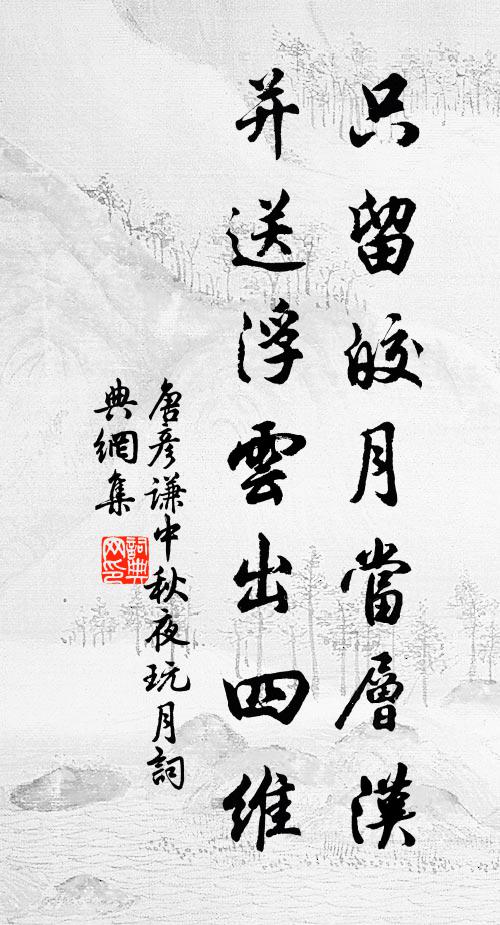 只留皎月當層漢
并送浮雲出四維
唐彥謙中秋夜玩月詞
典網集
詞典網印